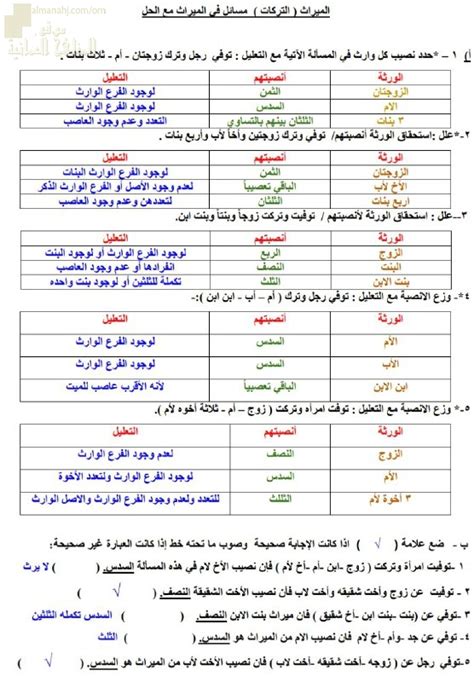 almanahj.com/om
موقع
المناهج العمانية
الميراث ( التركات ) مسائل في الميراث مع الحل
أ) ١ – *حدد نصيب كل وارث في المسألة الآتية مع التعليل : توفي رجل وترك زوجتان - أم - ثلاث بنات .
الورثة أنصبتهم التعليل
الزوجتان الثمن لوجود الفرع الوارث
الام السدس لوجود الفرع الوارث
٣ بنات الثلثان بينهم بالتساوي التعدد وعدم وجود العاصب
٢-*علل :استحقاق الورثة أنصبتهم/ توفي وترك زوجتين وأخاً لأب وأربع بنات .
الورثة أنصبتهم التعليل
الزوجتان الثمن لوجود الفرع الوارث البنات
الأخ لأب الباقي تعصيباً لعدم وجود الأصل أو الفرع الوارث الذكر
اربع بنات الثلثان لتعددهن وعدم وجود العاصب
٣–علل : استحقاق الورثة لأنصبتهم / توفيت وتركت زوجاً وبنتاً وبنت ابن.
الورثة أنصبتهم التعليل
الزوج الربع لوجود الفرع الوارث أو لوجود البنت
البنت النصف انفرادها أو عدم وجود العاصب
بنت الابن السدس تكملة للثلثين أو لوجود بنت واحده
٤* – وزع الانصبة مع التعليل : توفي رجل وترك ( أم – أب - ابن ابن ):-
الورثة أنصبتهم التعليل
الأم السدس لوجود الفرع الوارث
الأب السدس لوجود الفرع الوارث
ابن الابن الباقي تعصيباً لأنه الأقرب عاصب للميت
٥* وزع الانصبة مع التعليل : توفت امرأه وتركت ( زوج – أم - ثلاثة أخوه لأم ).
الورثة أنصبتهم التعليل
الزوج النصف لعدم وجود الفرع الوارث
الأم السدس لوجود الفرع الوارث ولتعدد الأخوة
٣ أخوة لأم الثلث للتعدد ولعدم وجود الفرع الوارث والاصل الوارث
ب - ضع علامة ( √ ) اذا كانت الإجابة صحيحة وصوب ما تحته خط إذا كانت العبارة غير صحيحة:
١ -توفيت امرأة وتركت ( زوج -ابن -أم -أخ لأم ) فإن نصيب الأخ لام في هذه المسألة السدس. ( ) لا يرث
٢ - توفيت عن زوج وأخت شقيقة وأخت لاب فان نصيب الأخت الشقيقة النصف ( √ )
٣- توفي عن (بنت- بنت ابن -أخ شقيق ) فان الميراث بنت الابن النصف. ( ) السدس تكمله الثلثين
٤- توفي عن جد -وأم -أخ لام فان نصيب الام من الميراث هو السدس ( ) الثلث
٥- توفي رجل عن ( زوجه -أخت شقيقه -أخت لأب ) فان نصيب الأخت لأب من الميراث هو السدس. ( √ )